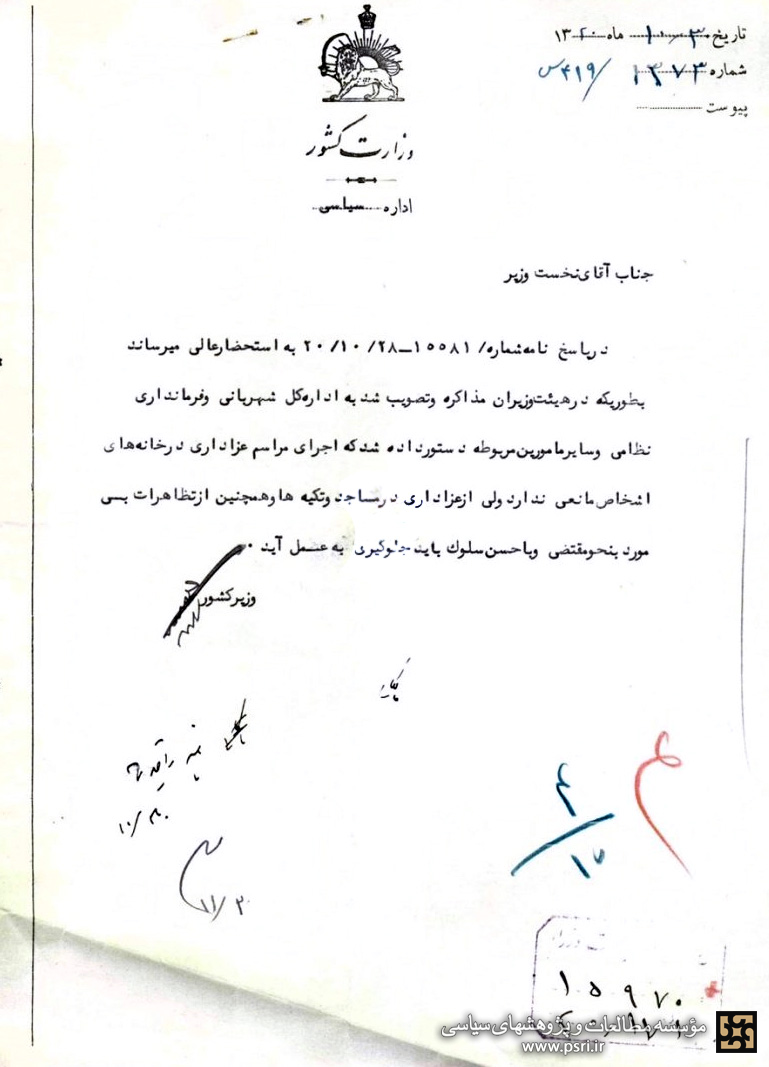 تاریخ ۳۰/۱۰ ماه ۱۳۲۰
شماره ۱۳۷۳ / ۴۱۹س
پیوست
وزارت کشور
اداره سیاسی
جناب آقای نخست وزیر
در پاسخ نامه شماره / ۱۵۵۸۱ــ۲۰/۱۰/۲۸ به استحضار عالی میرساند
بطوریکه در هیئت وزیران مذاکره و تصویب شد به اداره کل شهربانی و فرمانداری
نظامی و سایر مامورین مربوطه دستور داده شد که اجرای مراسم عزاداری در خانه های
اشخاص مانعی ندارد ولی از عزاداری در مساجد و تکیه ها و همچنین از تظاهرات بسی
مورد بنحو مقتضی و با حسن سلوک باید جلوگیری به عمل آید ۰
وزیر کشور
۱۰/۳۰
۱۱/۲
۴
۱۵۹۷۰
مؤسسه مطالعات و پژوهشهای سیاسی
www.psri.ir